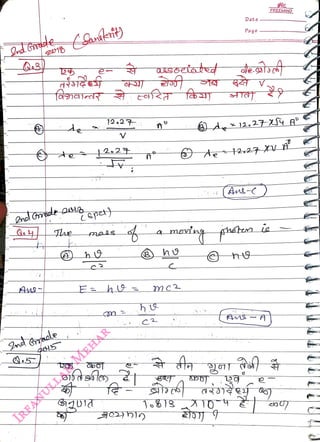 Date
Page
2nd Grade 2018 (Sanskrit)
Q.3 एक e- से associated डी-ब्रोग्ली
तरंगदैर्ध्य क्या होगी जब इसे V
विभवान्तर से त्वरित किया जाता है?
A λe = 12.27 / V A° B λe = 12.27 × √V A°
C λe = 12.27 / √V A° D λe = 12.27 × V A°
Ans - C
2nd Grade 2018 (Spcl)
Q.4 The mass of a moving photon is —
A hν / c² B hν / c C hν
Ans- E = hν = mc²
m = hν / c²
Ans - A
2nd Grade 2015
Q.5 एक कण e- से तीन गुना तेजी से
गतिशील है। इस कण एवं e-
की डि ब्रोग्ली तरंगदैर्ध्य का
अनुपात 1.813 × 10-4 है। कण
का द्रव्यमान होगा?
IRFANULLAH MEHAR